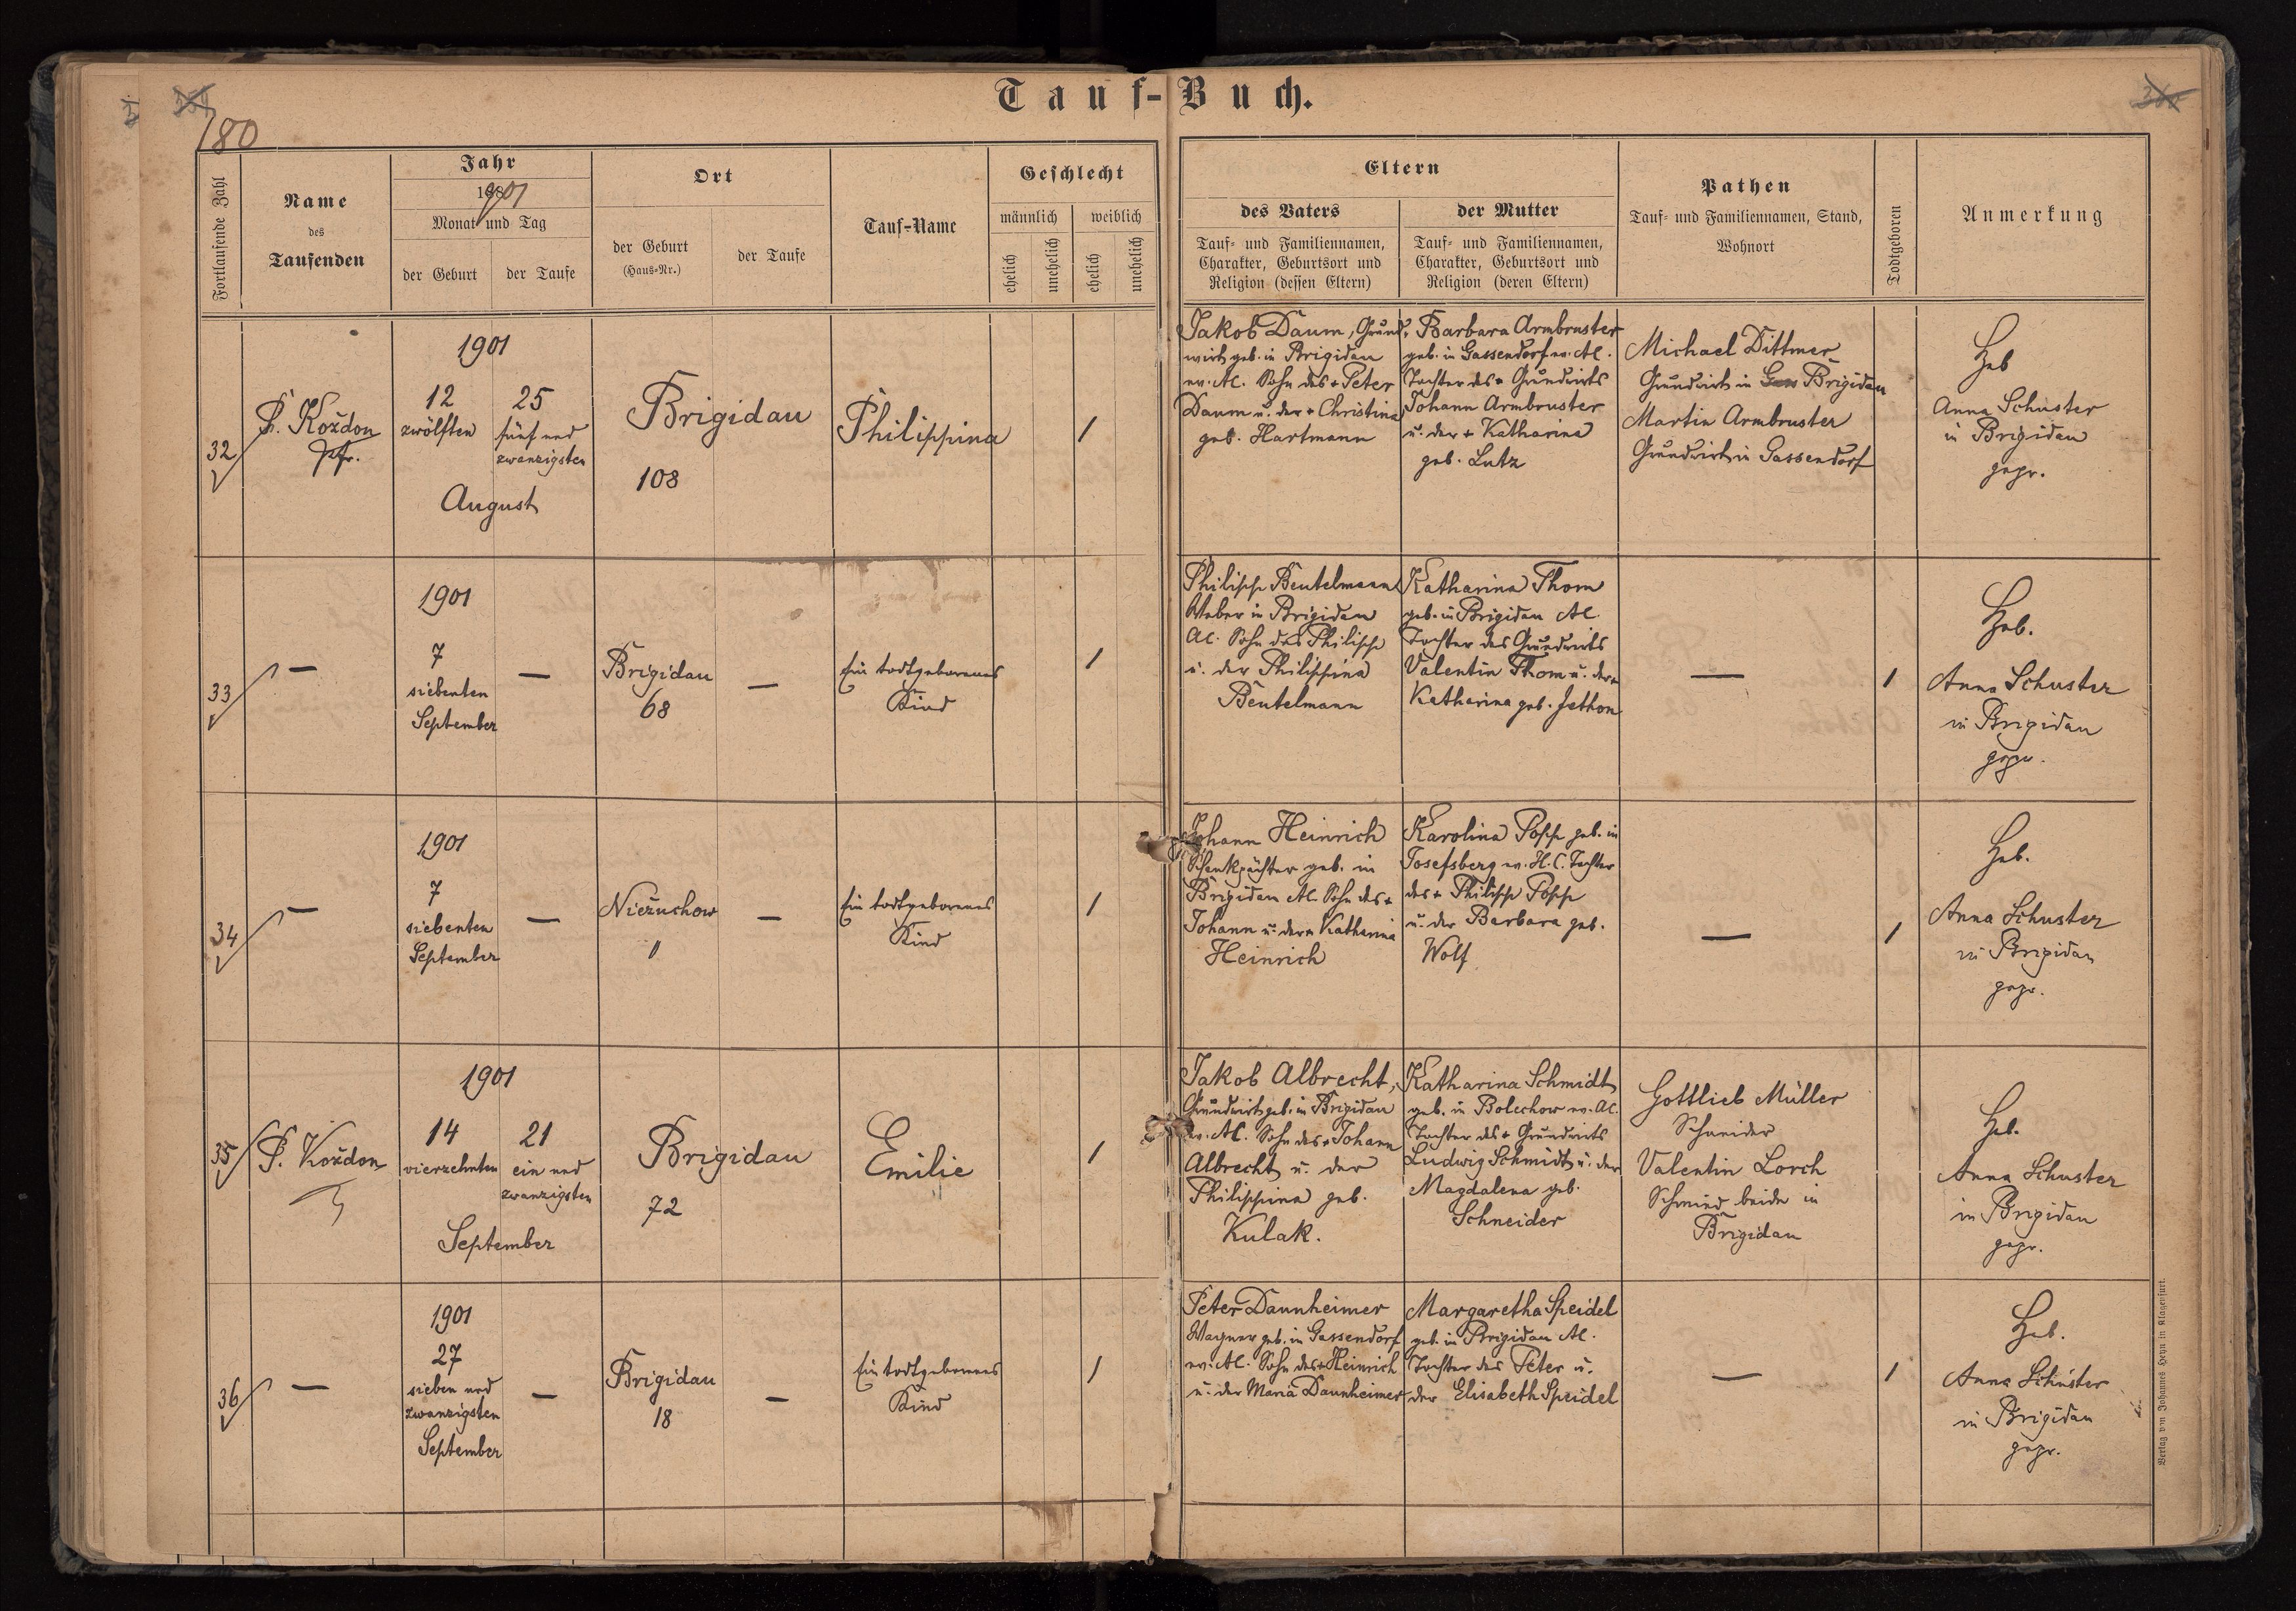 Tauf-Buch.
180
Fortlaufende Zahl
Name
des
Taufenden
Jahr
1901
Monat und Tag
der Geburt
der Taufe
Ort
der Geburt
(Haus-Nr.)
der Taufe
Tauf-Name
Geschlecht
männlich
weiblich
ehelich
unehelich
ehelich
unehelich
Eltern
des Vaters
Tauf- und Familiennamen,
Charakter, Geburtsort und
Religion (dessen Eltern)
der Mutter
Tauf- und Familiennamen,
Charakter, Geburtsort und
Religion (deren Eltern)
Pathen
Tauf- und Familiennamen, Stand,
Wohnort
Todtgeboren
Anmerkung
32
P. Koždon
Pfr.
1901
12
zwölften
25
fünf und
zwanzigsten
August
Brigidau
108
Philippina
1
Jakob Daum, Grund-
wirt geb. in Brigidau
ev. AC. Sohn des + Peter
Daum u. der + Christina
geb. Hartmann
Barbara Armbruster
geb. in Gassendorf ev. AC.
Tochter des + Grundwirts
Johann Armbruster
u. der + Katharina
geb. Lutz
Michael Dittmer
Grundwirt in Brigidau
Martin Armbruster
Grundwirt in Gassendorf
Heb
Anna Schuster
in Brigidau
gepr.
33
—
1901
7
siebenten
September
—
Brigidau
68
—
Ein todtgeborenes
Kind
1
Philipp Beutelmann
Weber in Brigidau
AC. Sohn des Philipp
u. der Philippina
Beutelmann
Katharina Thom
geb. in Brigidau AC
Tochter des Grundwirts
Valentin Thom u. der +
Katharina geb. Jethon
—
1
Heb.
Anna Schuster
in Brigidau
gepr.
34
—
1901
7
siebenten
September
—
Nieżuchow
1
—
Ein todtgeborenes
Kind
1
Johann Heinrich
Schenkpächter geb. in
Brigidau AC. Sohn des +
Johann u. der + Katharina
Heinrich
Karolina Popp geb. in
Josefsberg ev. H.C. Tochter
des + Philipp Popp
u. der Barbara geb.
Wolf
—
1
Heb.
Anna Schuster
in Brigidau
gepr.
35
P. Koždon
1901
14
vierzehnten
21
ein und
zwanzigsten
September
Brigidau
72
Emilie
1
Jakob Albrecht,
Grundwirt geb. in Brigidau
ev. AC. Sohn des + Johann
Albrecht u. der
Philippina geb.
Kulak.
Katharina Schmidt
geb. in Bolechow ev. AC.
Tochter des + Grundwirts
Ludwig Schmidt u. der
Magdalena geb.
Schneider
Gottlieb Müller
Schneider
Valentin Lorch
Schmied beide in
Brigidau
Heb.
Anna Schuster
in Brigidau
gepr.
36
—
1901
27
sieben und
zwanzigsten
September
—
Brigidau
18
—
Ein todtgeborenes
Kind
1
Peter Dannheimer
Wagner geb. in Gassendorf
ev. AC. Sohn des + Heinrich
u. der Maria Dannheimer
Margaretha Speidel
geb. in Brigidau AC.
Tochter des Peter u.
der Elisabeth Speidel
—
1
Heb.
Anna Schuster
in Brigidau
gepr.
Verlag von Johannes Heyn in Klagenfurt.